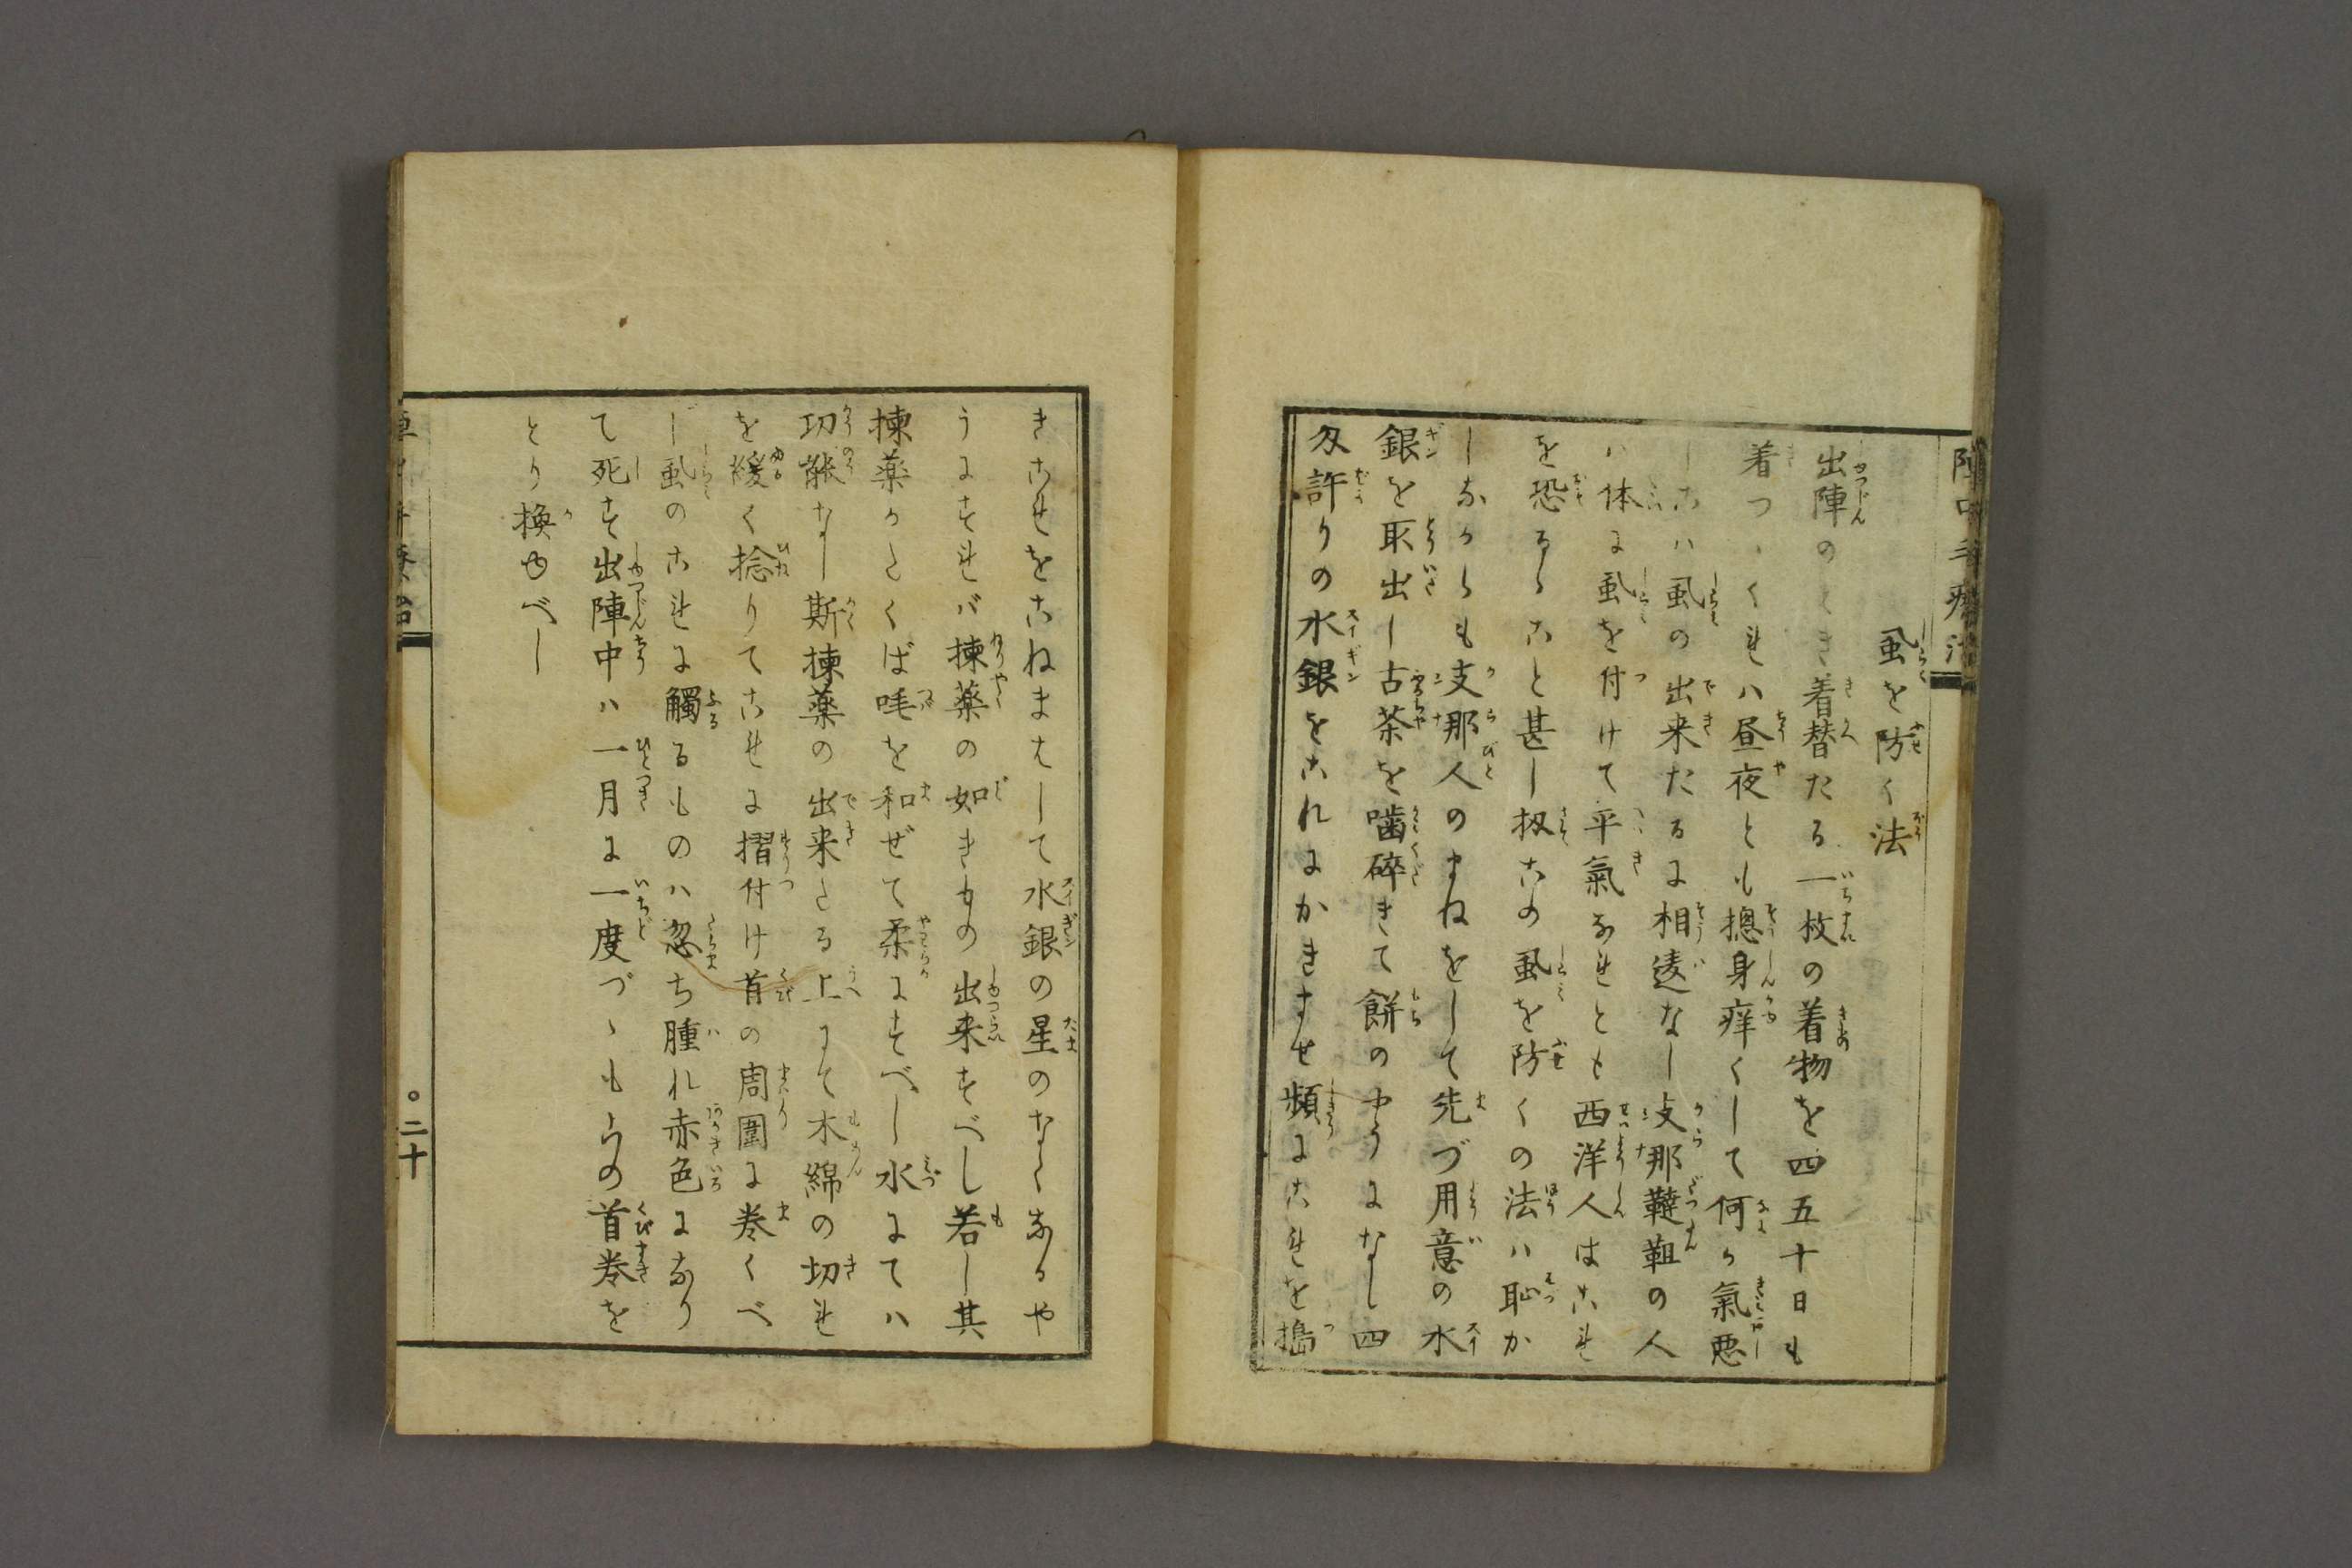 虱を防く法
出陣のとき着替たる一枚の着物を四五十日も
着つゝくれハ昼夜とも摠身痒くして何か氣悪
しこハ虱の出来たるに相違なし支那韃靼の人
ハ体に虱を付けて平氣なれとも西洋人はこれ
を恐るゝこと甚し扨この虱を防くの法ハ恥か
しなからも支那人のまねをして先づ用意の水
銀を取出し古茶を噛碎きて餅のやうになし四
匁許りの水銀をこれにかきませ頻にこれを搗
きこれをこねまはして水銀の星のなくなるや
うにすれバ揀薬の如きもの出来すべし若し其
揀薬かたくば唾を和ぜて柔にすべし水にてハ
功能なし斯揀薬の出来たる上にて木綿の切れ
を緩く捻りてこれに摺付け首の周圍に巻くべ
し虱のこれに觸るものハ忽ち腫れ赤色になり
て死す出陣中ハ一月に一度づゝもこの首巻を
とり換ゆべし
二十